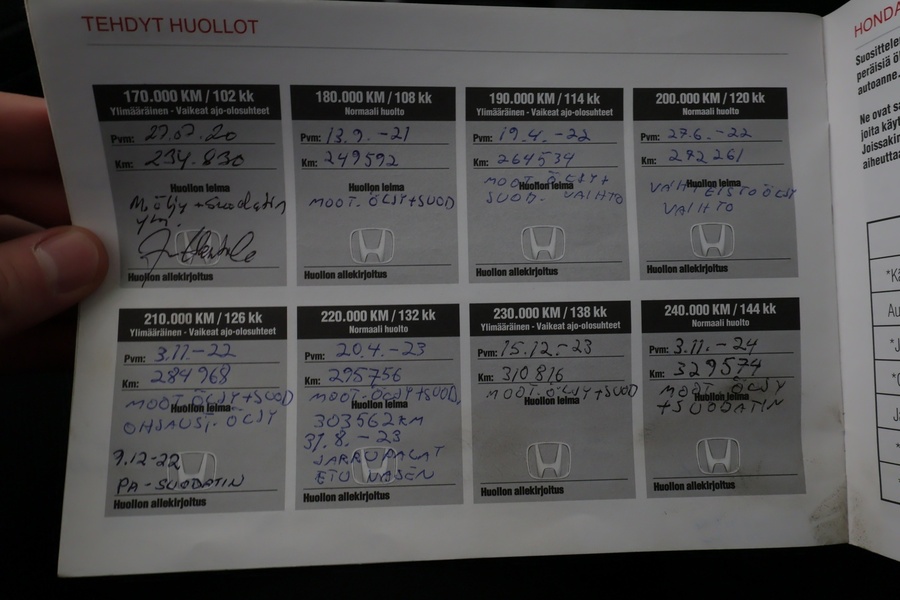 TEHDYT HUOLLOT
170.000 KM / 102 kk
Ylimääräinen - Vaikeat ajo-olosuhteet
Pvm: 27.07.20
Km: 234.830
Huollon leima
M. öljy + suodatin
ym.
Huollon allekirjoitus
180.000 KM / 108 kk
Normaali huolto
Pvm: 13.9.-21
Km: 249592
Huollon leima
MOOT. ÖLJY+SUOD
Huollon allekirjoitus
190.000 KM / 114 kk
Ylimääräinen - Vaikeat ajo-olosuhteet
Pvm: 19.4.-22
Km: 264534
MOOT. ÖLJY+
Huollon leima
SUOD. VAIHTO
Huollon allekirjoitus
200.000 KM / 120 kk
Normaali huolto
Pvm: 27.6.-22
Km: 272261
Huollon leima
VAIHTEISTOÖLJY
VAIHTO
Huollon allekirjoitus
210.000 KM / 126 kk
Ylimääräinen - Vaikeat ajo-olosuhteet
Pvm: 3.11-22
Km: 284968
MOOT. ÖLJY+SUOD
Huollon leima
OHJAUST. ÖLJY
9.12-22
PA-SUODATIN
Huollon allekirjoitus
220.000 KM / 132 kk
Normaali huolto
Pvm: 20.4.-23
Km: 295756
MOOT. ÖLJY+SUOD.
Huollon leima
303562KM
31.8.-23
JARRUPALAT
ETU VASEN
Huollon allekirjoitus
230.000 KM / 138 kk
Ylimääräinen - Vaikeat ajo-olosuhteet
Pvm: 15.12.-23
Km: 310816
MOOT. ÖLJY+SUOD
Huollon leima
Huollon allekirjoitus
240.000 KM / 144 kk
Normaali huolto
Pvm: 3.11.-24
Km: 329574
MOOT. ÖLJY
Huollon leima
+SUODATIN
Huollon allekirjoitus
HONDA
Suosittele
peräisiä ö
autoanne.
Ne ovat sa
joita käyt
Joissakin
aiheutta